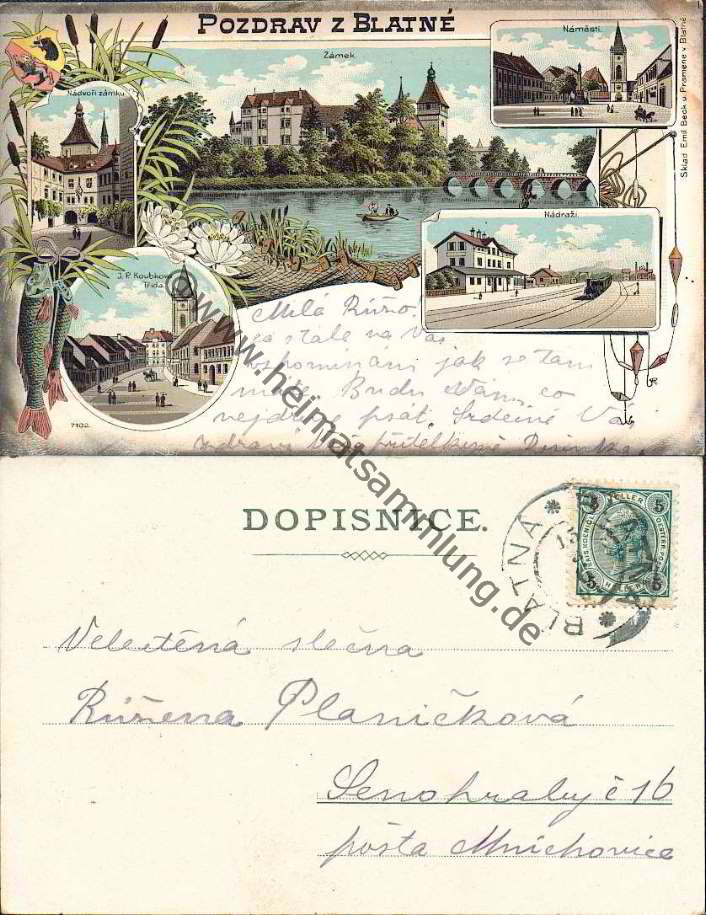 POZDRAV Z BLATNÉ
Zámek.
Náměstí.
Nádvoří zámku
Nádraží.
J. P. Koubkova
Třída.
Sklad Emil Beck u Pramene v Blatné
7102
Milá Růžo.
Já stále na Vás
vzpomínám jak se tam
máte. Budu Vám co
nejdříve psát. Srdečně Vás
zdraví Vaše přítelkyně
www.heimatsammlung.de
DOPISNICE.
BLATNA
BLATNÁ
5 HELLER 5
5 5
Velectěná slečna
Růžena Planičková
Senohraby č 16
pošta Mnichovice